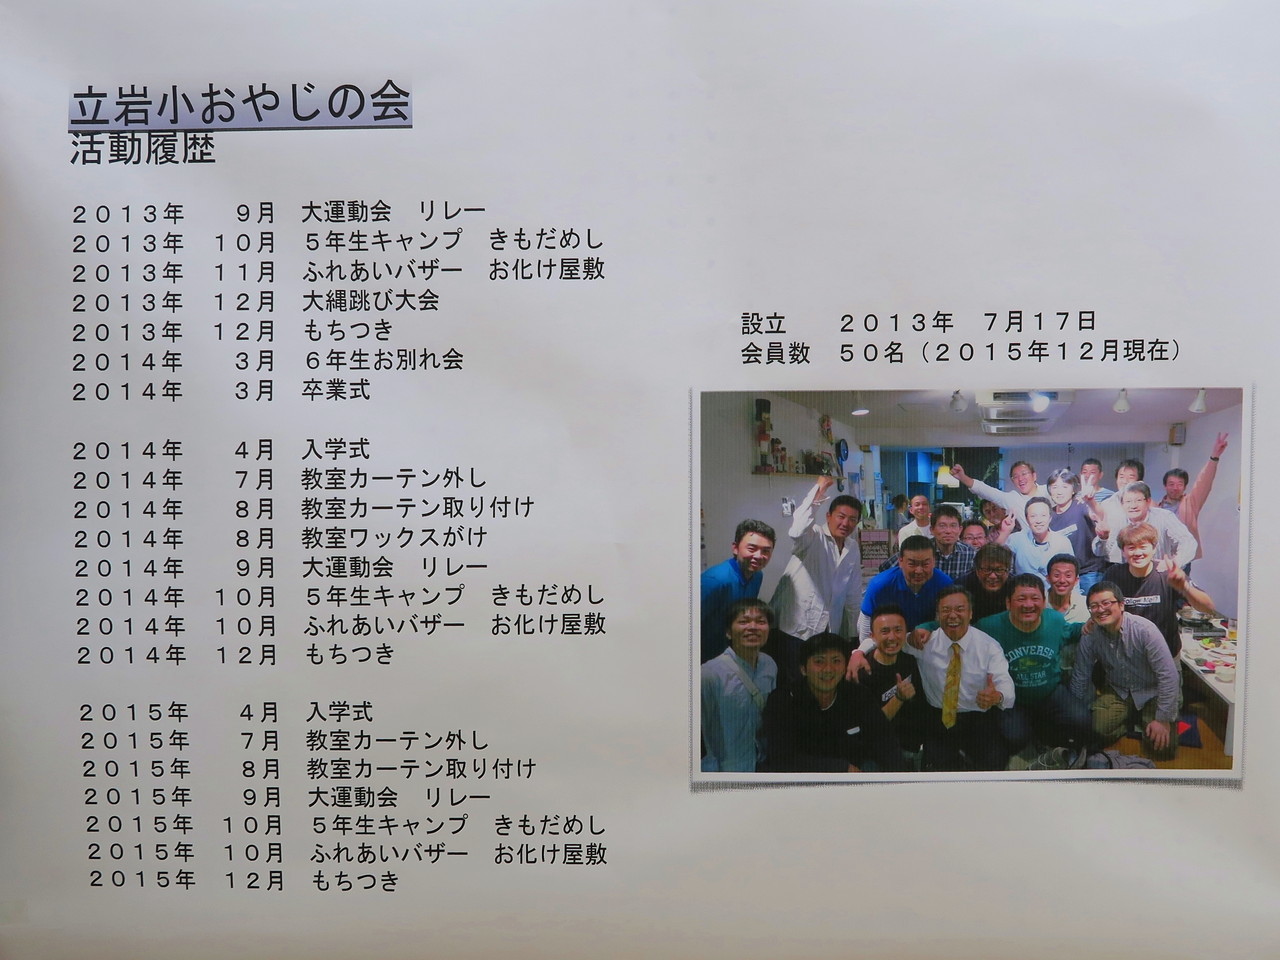 立岩小おやじの会
活動履歴
２０１３年　９月　大運動会　リレー
２０１３年　１０月　５年生キャンプ　きもだめし
２０１３年　１１月　ふれあいバザー　お化け屋敷
２０１３年　１２月　大縄跳び大会
２０１３年　１２月　もちつき
２０１４年　３月　６年生お別れ会
２０１４年　３月　卒業式
２０１４年　４月　入学式
２０１４年　７月　教室カーテン外し
２０１４年　８月　教室カーテン取り付け
２０１４年　８月　教室ワックスがけ
２０１４年　９月　大運動会　リレー
２０１４年　１０月　５年生キャンプ　きもだめし
２０１４年　１０月　ふれあいバザー　お化け屋敷
２０１４年　１２月　もちつき
２０１５年　４月　入学式
２０１５年　７月　教室カーテン外し
２０１５年　８月　教室カーテン取り付け
２０１５年　９月　大運動会　リレー
２０１５年　１０月　５年生キャンプ　きもだめし
２０１５年　１０月　ふれあいバザー　お化け屋敷
２０１５年　１２月　もちつき
設立　２０１３年　７月１７日
会員数　５０名（２０１５年１２月現在）
CONVERSE
ALL STAR